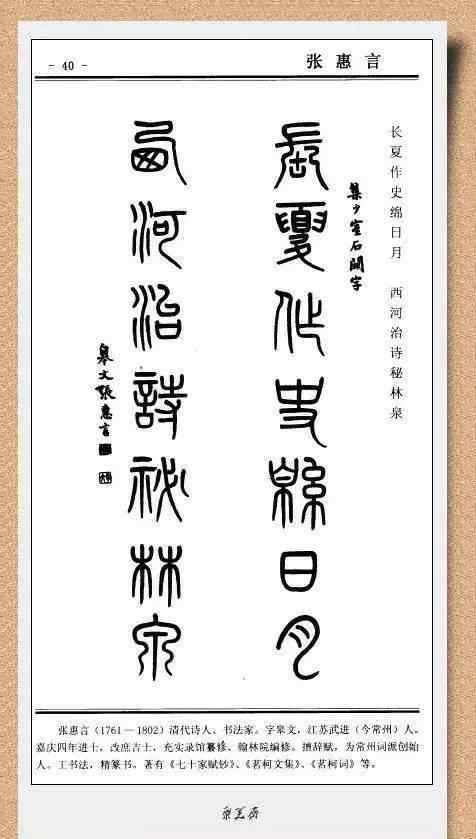 - 40 -
张惠言
长夏作史绵日月 西河治诗秘林泉
集少室石阙字
長夏作史緜日月
西河治詩祕林泉
皋文張惠言
张惠言（1761—1802）清代诗人、书法家。字皋文，江苏武进（今常州）人。
嘉庆四年进士，改庶吉士，充实录馆纂修、翰林院编修。擅辞赋，为常州词派创始
人。工书法，精篆书。著有《七十家赋钞》、《茗柯文集》、《茗柯词》等。